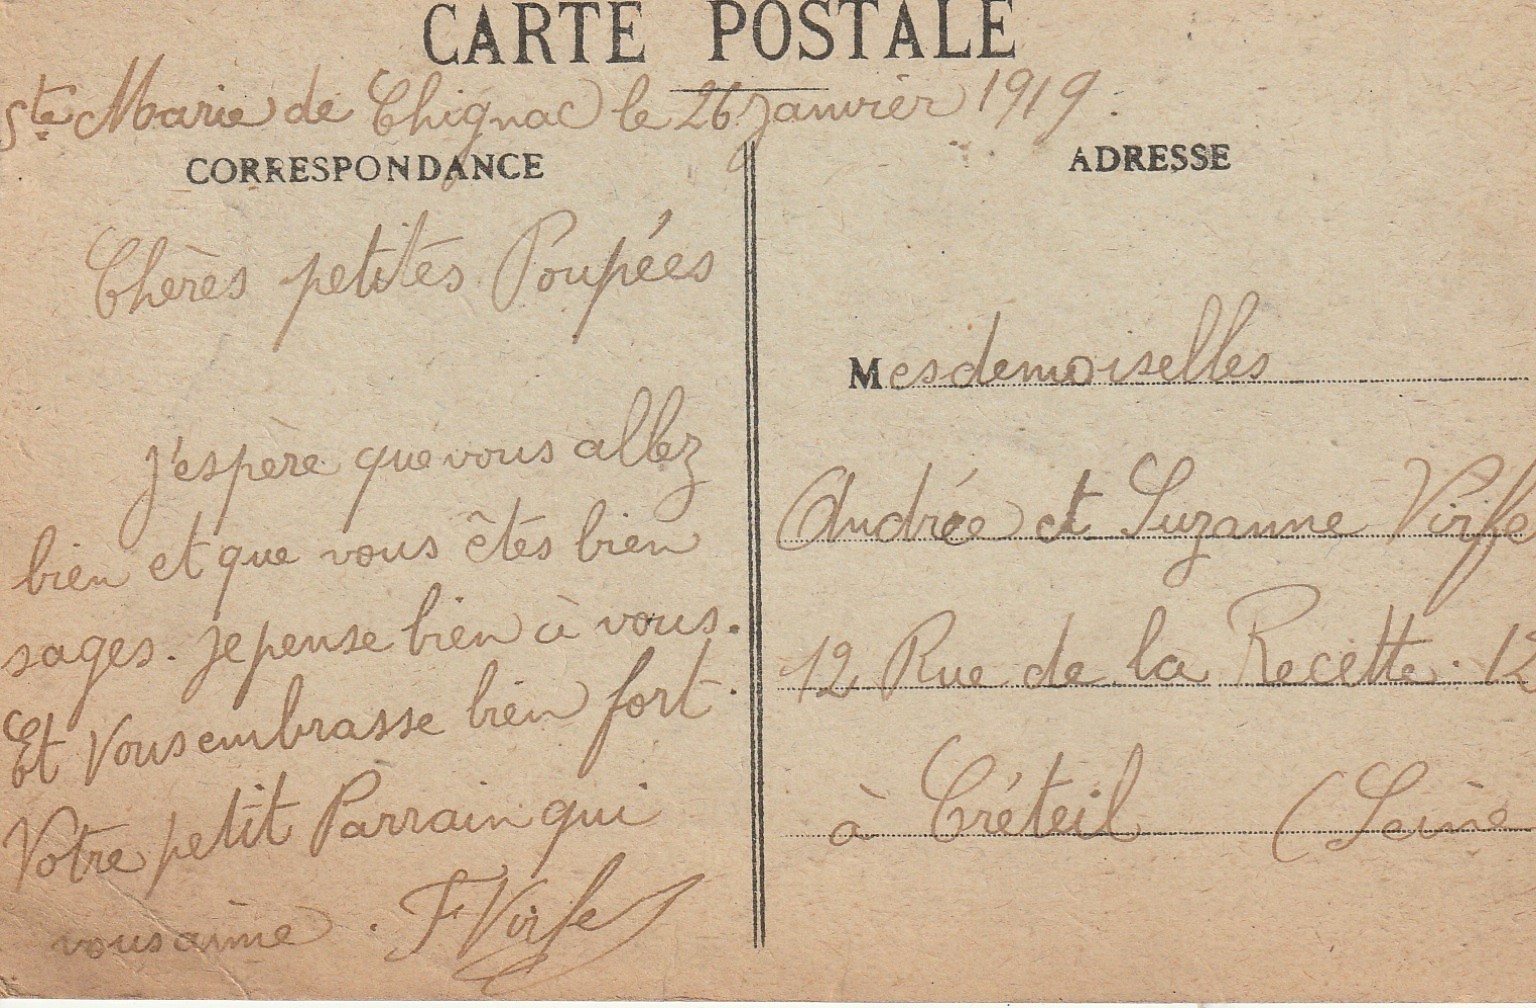 CARTE POSTALE
Ste Marie de Chignac le 26 Janvier 1919.
CORRESPONDANCE
Chères petites Poupées
J'espère que vous allez
bien et que vous êtes bien
sages. Je pense bien à vous.
Et vous embrasse bien fort.
Votre petit Parrain qui
vous aime. F Virfe
ADRESSE
Mesdemoiselles
Andrée et Suzanne Virfe
12 Rue de la Recette. 12
à Créteil (Seine